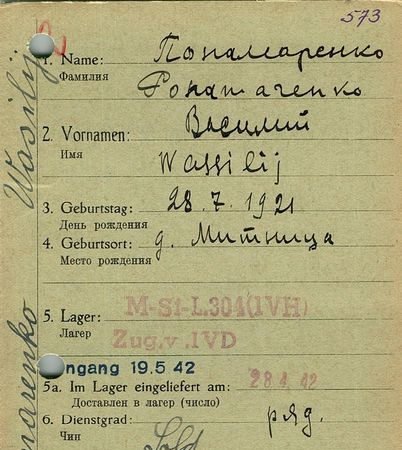 573
1. Name: Понамаренко
Фамилия
Ponamarenko
2. Vornamen: Василий
Имя
Wassilij
3. Geburtstag: 28.7.1921
День рождения
4. Geburtsort: д. Митница
Место рождения
5. Lager: M-St-L.304(IVH)
Лагер
Zug.v.IVD
ngang 19.5 42
5a. Im Lager eingeliefert am: 28.4.42
Доставлен в лагер (число)
6. Dienstgrad: ряд.
Чин
Sold
Wasilij
arenko